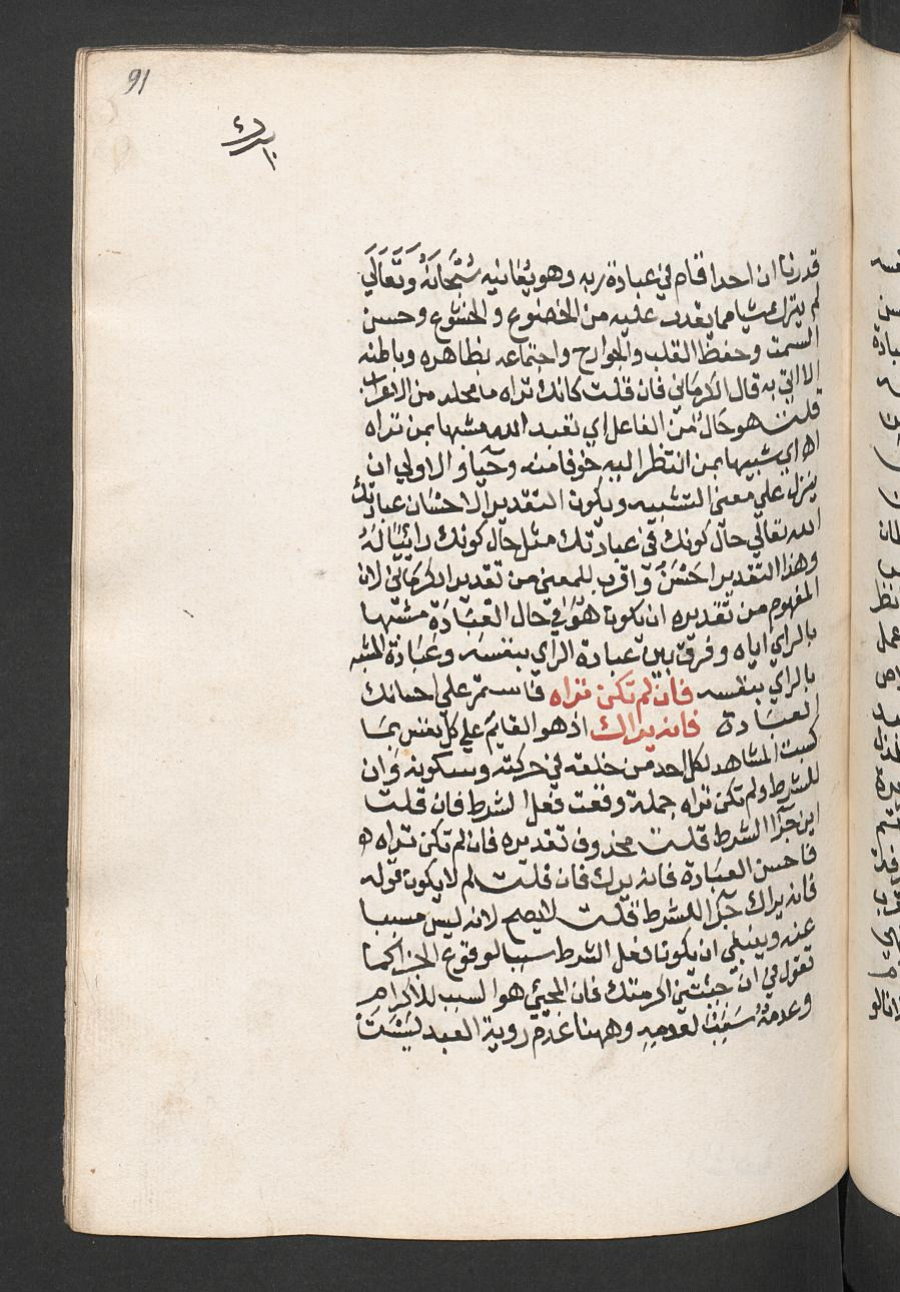 91
قدرنا ان احدا قام في عبادة ربه وهو يعاينه سُبْحَانَهُ وَتَعَالَي
لم يترك شيا مما يقدر عليه من الخضوع والخشوع وحسن
السمت وحفظ القلب والجوارح واجتماعه بظاهره وباطنه
الا اتي به قال الكرماني فان قلت كانك تراه ما محله من الاعراب
قلت هو حَالٌ من الفاعل اي تعبد الله مشبها بمن تراه
اه اي شبيها بمن انتظر اليه خوفا منه وحيا والاولي ان
ينزل علي معني التشبيه ويكون التقدير الاحسان عبادتك
الله تعالي حال كونك في عبادتك مثل حال كونك رائيا لَهُ
وهذا التقدير احْسَنُ واقرب للمعني من تقدير الكرماني لان
المفهوم من تقديره ان يكون هُوَ في حال العبَادَة مشبها
بالراي اياه وفرق بين عبادة الراي بنفسه وعبادة المشبه
بالراي بنفسه فان لم تكن تراه فاستمر علي احسانك
العبَادة فانه يراك اذ هو القايم علي كل نفس بما
كسبت المشاهد لكل احد من خلقه في حركته وسكونه وَان
للشرط ولم تكن تراه جملة وقعت فعل الشرط فان قلت
اين جزا الشرط قلت محذوف تقديره فان لم تكن تراه ه
فاحسن العبَادة فانه يراك فان قلت لم لا يكون قوله
فانه يراك جزا للشرط قلت لا يصح لانه ليس مسببا
عنه وينبغي ان يكون فعل الشرط سببا لوقوع الجزا كما
تقول في ان جئتني اكرمتك فان المجئي هو السبب للاكرام
وعدمهُ سَبَبٌ لعدمِهِ وههنا عدم روية العبد ليسَتْ